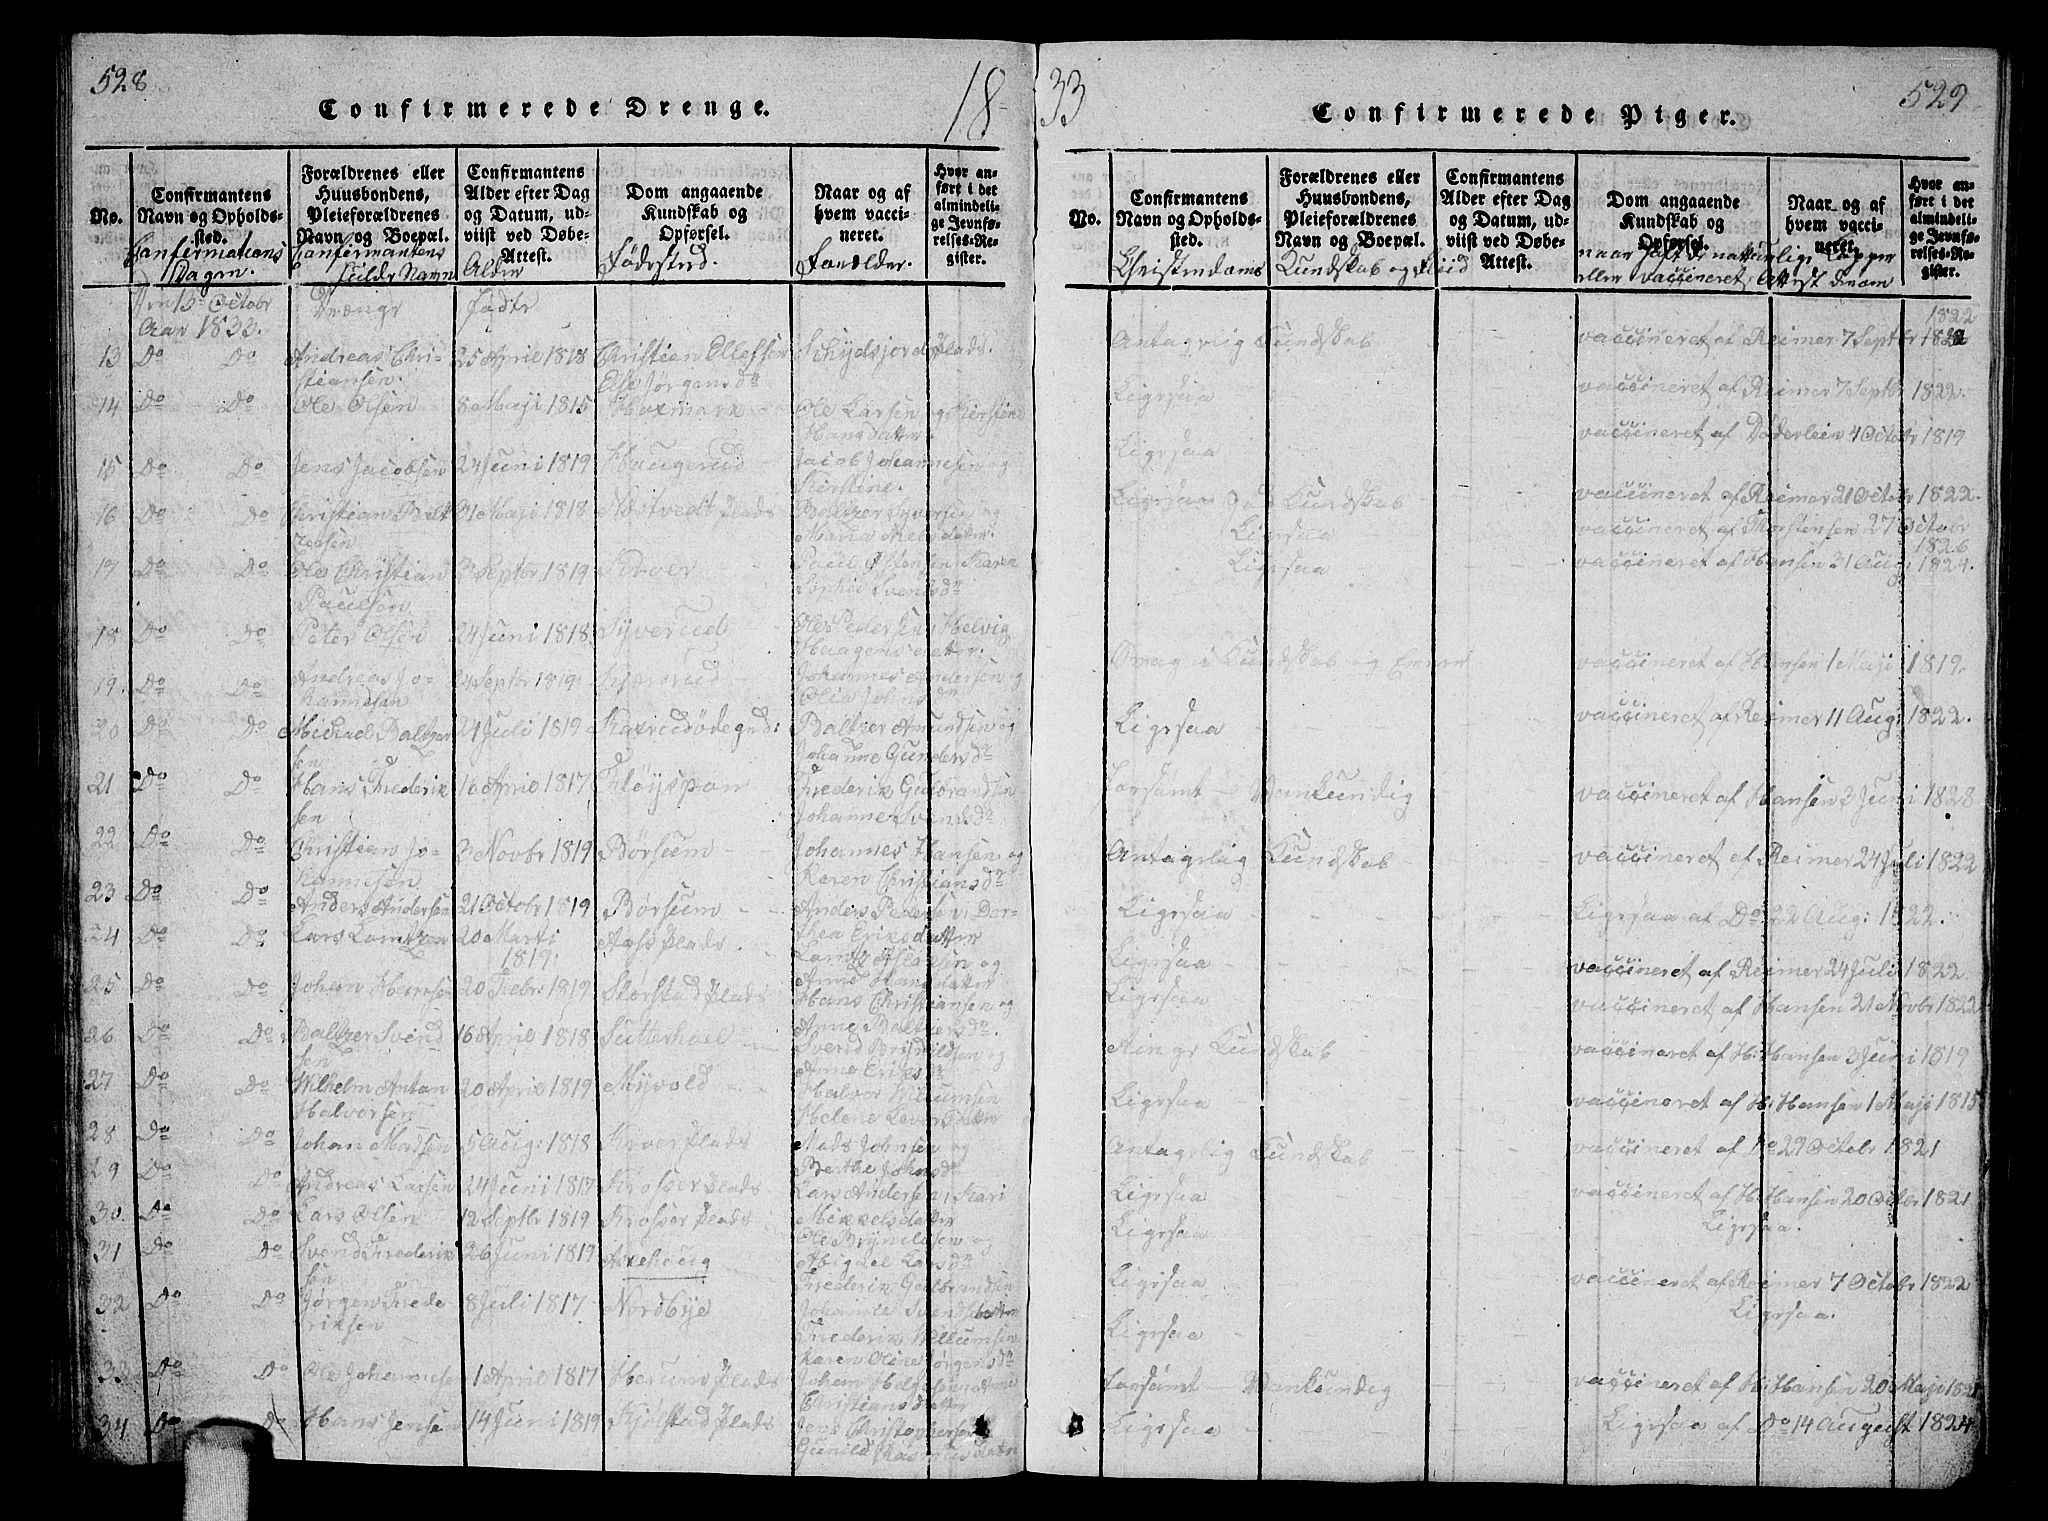 528
18
Confirmerede Drenge.
No.
Confirmantens Navn og Opholdssted.
Forældrenes eller Huusbondens, Pleieforældrenes Navn og Boepæl.
Confirmantens Alder efter Dag og Datum, udviist ved Døbe-Attest.
Dom angaaende Kundskab og Opførsel.
Naar og af hvem vaccineret.
Hvor anført i det almindelige Jevnførelses-Register.
Confirmations Dagen.
Confirmantens fulde Navn
Alder
Fødested.
Forældre.
Den 13de Octobr Aar 1833.
Drænge
fødte
13 Do Do Andreas Christiansen. 25 April 1818 Schydsjordplads. Christian Ellefsen Else Jørgensdr
14 Do Do Ole Olsen 8 Maji 1815 Ole Larsen og Kierstine Hansdatter.
15 Do Do Jens Jacobsen 24 Juni 1819 Haugerud Jacob Johannesen og Kirstine.
16 Do Do Christian Baltzersen 31 Maji 1818 Næstvedt Plads Baltzer Syversen og Maria Nielsdatter.
17 Do Do Ole Christian Paulsen Septbr 1819 Krver Paul Østensen, Karen Svendsdr
18 Do Do Peter Olsen 24 Juni 1818 Syverud Ole Pedersen, Helvig Haagensdatter.
19. Do Do Andreas Johannesen 24 Septbr 1819. Kjærerud Johannes Andersen og Olia Johnsdr
20 Do Do Michael Baltzersen 24 Juli 1819 Baltzer Amundsen og Johanne Gundersdr
21 Do Do Hans Frederiksen 16 April 1817 Fløyspon Frederik Gulbrandsen Johanne Svendsdr
22 Do Do Christian Johannesen 3 Novbr 1819 Børsum Johannes Hansen og Karen Christiansdr
23 Do Do Anders Andersen 21 Octobr 1819 Børsum Anders Pedersen, Dorthea Eriksdatter
24 Do Do Lars Lamtzen 20 Marti 1819. Aass Plads. Lamts Aslaksen og Anne Hansdatter
25 Do Do Johan Hansen 20 Febr: 1819 Størstad Plads Hans Christiansen og Anne Baltzersdr.
26 Do Do Baltzer Svendsen 16 April 1818 Sutterhoel Svend Brynildsen og Anne Eriksdr
27 Do Do Wilhelm Anton Halvorsen 20 April 1819 Myvold Halvor Willumsen Helene Leversdatter
28 Do Do Johan Madsen 5 Aug: 1818 Krver Plads Mads Johnsen og Berthe Johansdr
29 Do Do Andreas Larsen 24 Juni 1817 Krosser Plads Lars Andersen, Kari Mikkelsdatter
30. Do Do Lars Olsen 12 Septbr 1819 Krosser Plads Ole Brynildsen og Abigael Larsdr
31 Do Do Svend Frederiksen 26 Juni 1819 Axehoug Frederik Gulbrandsen Johanne Svendsdatter
32 Do Do Jørgen Frederiksen 8 Juli 1817 Nordbye Frederik Willumsen Karen Oline Jørgensdr
33 Do Do Ole Johannesen 1 April 1817 Herum Plads Johan Helgesen, Anne Christiansdatter
34 Do Do Hans Jensen 14 Juni 1819 Kjølstad Plads Jens Christophersen Gunild Rasmusdatter
33
529
Confirmerede Piger.
No.
Confirmantens Navn og Opholdssted.
Forældrenes eller Huusbondens, Pleieforældrenes Navn og Boepæl.
Confirmantens Alder efter Dag og Datum, udviist ved Døbe-Attest.
Dom angaaende Kundskab og Opførsel.
Naar og af hvem vaccineret.
Hvor anført i det almindelige Jevnførelses-Register.
Christendoms Kundskab og Fliid
naar haft de naturlige Kopper eller vaccineret, Attest derom
Antagelig Kundskab vaccineret af Reimer 7 Septbr 1822
Ligesaa vaccineret af Reimer 7 Septbr 1822.
Ligesaa vaccineret af Döderlein 4 Octobr 1819
Ligesaa god Kundskab vaccineret af Reimer 21 Octobr 1822.
Ligesaa vaccineret af Thorstensen 27 Octobr 1826
Ligesaa vaccineret af Hansen 31 Aug: 1824.
Svag i Kundskab og Emner vaccineret af Hansen 1 Maji 1819.
Ligesaa vaccineret af Reimer 11 Aug: 1822.
Forsømt Vankundig vaccineret af Hansen 3 Juni 1828
Antagelig Kundskab vaccineret af Reimer 24 Juli 1822
Ligesaa Ligesaa af Do 22 Aug: 1822.
Ligesaa vaccineret af Reimer 24 Juli 1822
Ligesaa vaccineret af Hansen 21 Novbr 1822
Ringe Kundskab vaccineret af H: Hansen 3 Juni 1819
Ligesaa vaccineret af H: Hansen 1 Maji 1815
Antagelig Kundskab vaccineret af Do 29 Octobr 1821
Ligesaa vaccineret af H: Hansen 20 Octbr 1821
Ligesaa Ligesaa.
Ligesaa vaccineret af Reimer 7 Octobr 1822
Ligesaa Ligesaa.
Forsømt Vankundig vaccineret af H: Hansen 20 Maji 1821
Ligesaa Ligesaa af Do 14 August 1824